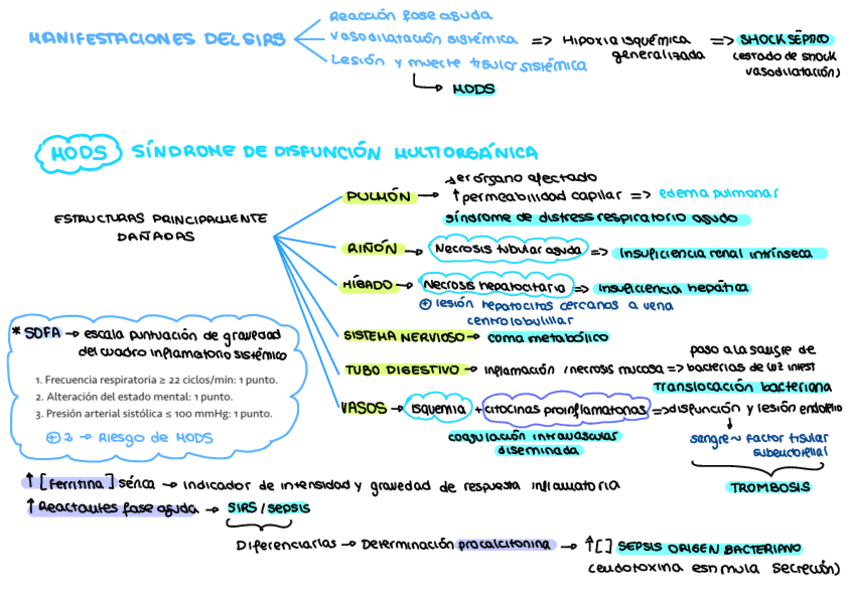 Reacción fase aguda
MANIFESTACIONES DEL SIRS
Vasodilatación sistémica => Hipoxia isquémica generalizada => SHOCK SÉPTICO
(estado de shock vasodilatación)
Lesión y muerte tisular sistémica
MODS
MODS SÍNDROME DE DISFUNCIÓN MULTIORGÁNICA
ESTRUCTURAS PRINCIPALMENTE
DAÑADAS
1er órgano afectado
PULMÓN → ↑ permeabilidad capilar => edema pulmonar
síndrome de distress respiratorio agudo
RIÑÓN → Necrosis tubular aguda => Insuficiencia renal intrínseca
HÍGADO → Necrosis hepatocitaria => Insuficiencia hepática
⊕ lesión hepatocitos cercanos a vena
centrolobulillar
SISTEMA NERVIOSO → coma metabólico
TUBO DIGESTIVO → inflamación / necrosis mucosa => paso a la sangre de
bacterias de luz intest
Translocación bacteriana
VASOS → isquemia + citocinas proinflamatorias => disfunción y lesión endotelio
coagulación intravascular
diseminada
sangre ~ factor tisular
subendotelial
TROMBOSIS
* SOFA → escala puntuación de gravedad
del cuadro inflamatorio sistémico
1. Frecuencia respiratoria ≥ 22 ciclos/min: 1 punto.
2. Alteración del estado mental: 1 punto.
3. Presión arterial sistólica ≤ 100 mmHg: 1 punto.
⊕ 2 → Riesgo de MODS
↑ [Ferritina] sérica → indicador de intensidad y gravedad de respuesta inflamatoria
↑ Reactantes fase aguda → SIRS / sepsis
Diferenciarlas → Determinación procalcitonina → ↑ [ ] SEPSIS ORIGEN BACTERIANO
(endotoxina estimula secreción)